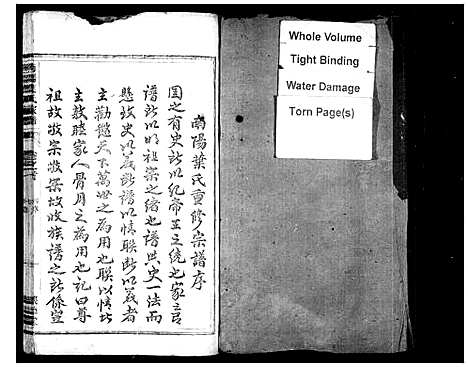 南陽葉氏重修宗譜序
國之有史所以紀帝王之統也家之有
譜所以明祖宗之緒也譜與史一法而
懸殊史以義斷譜以情聯斷以義者
主勸懲天下萬世之為用也聯以情者
主敦睦家人骨月之為用也記曰尊
祖故敬宗敬宗故收族譜之所係豈
Whole Volume
Tight Binding
Water Damage
Torn Page(s)